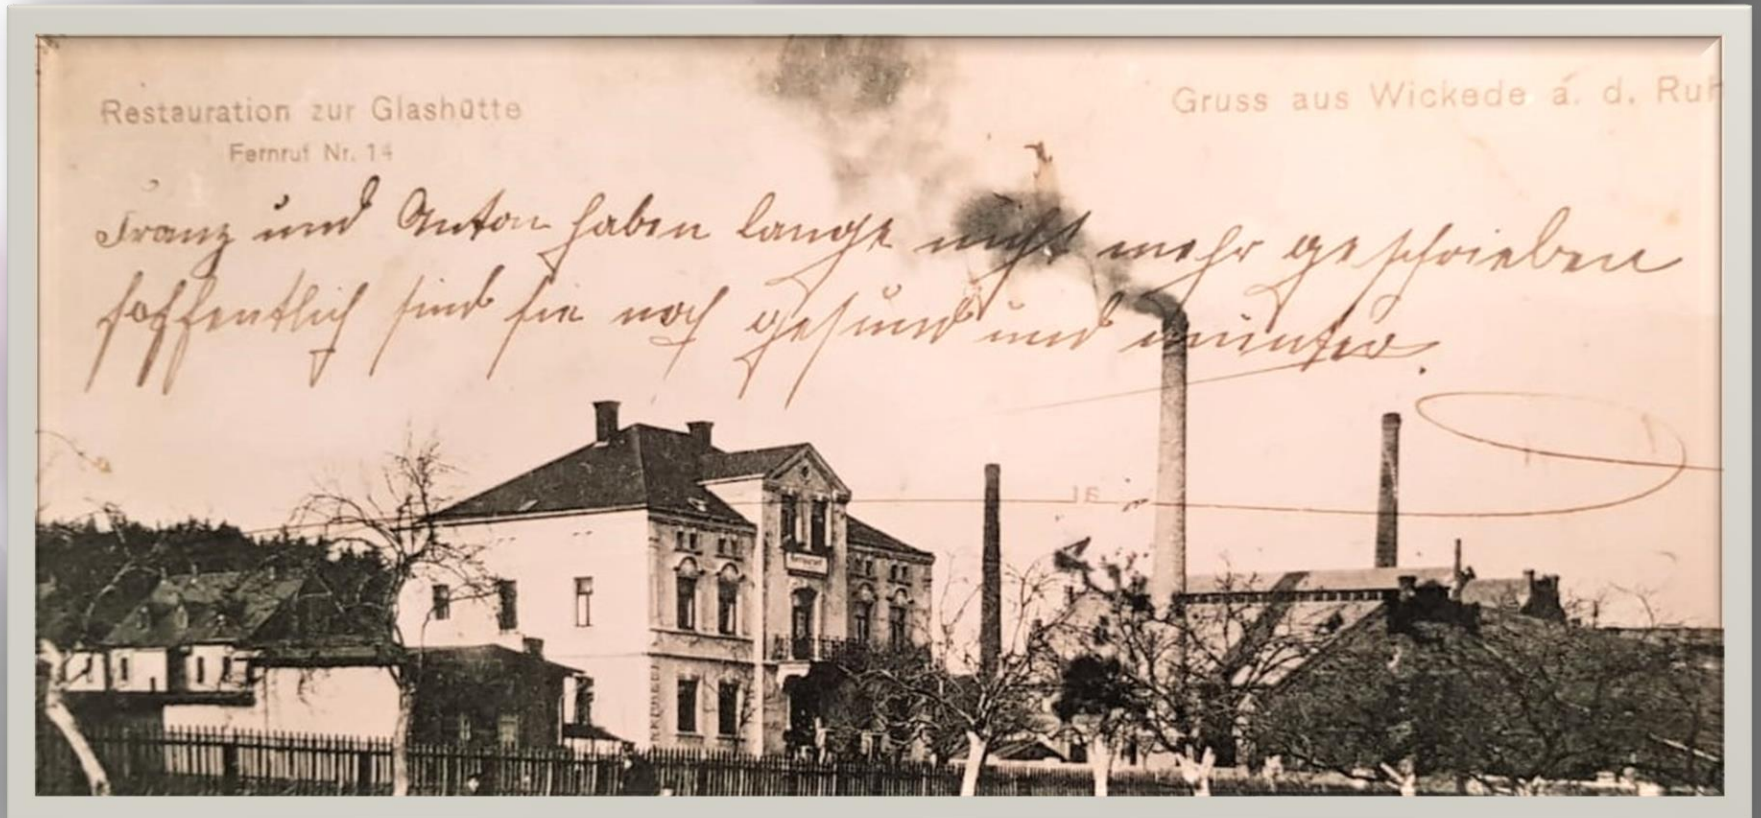 Restauration zur Glashütte
Fernruf Nr. 14
Gruss aus Wickede a. d. Ruh
Franz und Anton haben lange nicht mehr geschrieben
hoffentlich sind sie noch gesund und munter.